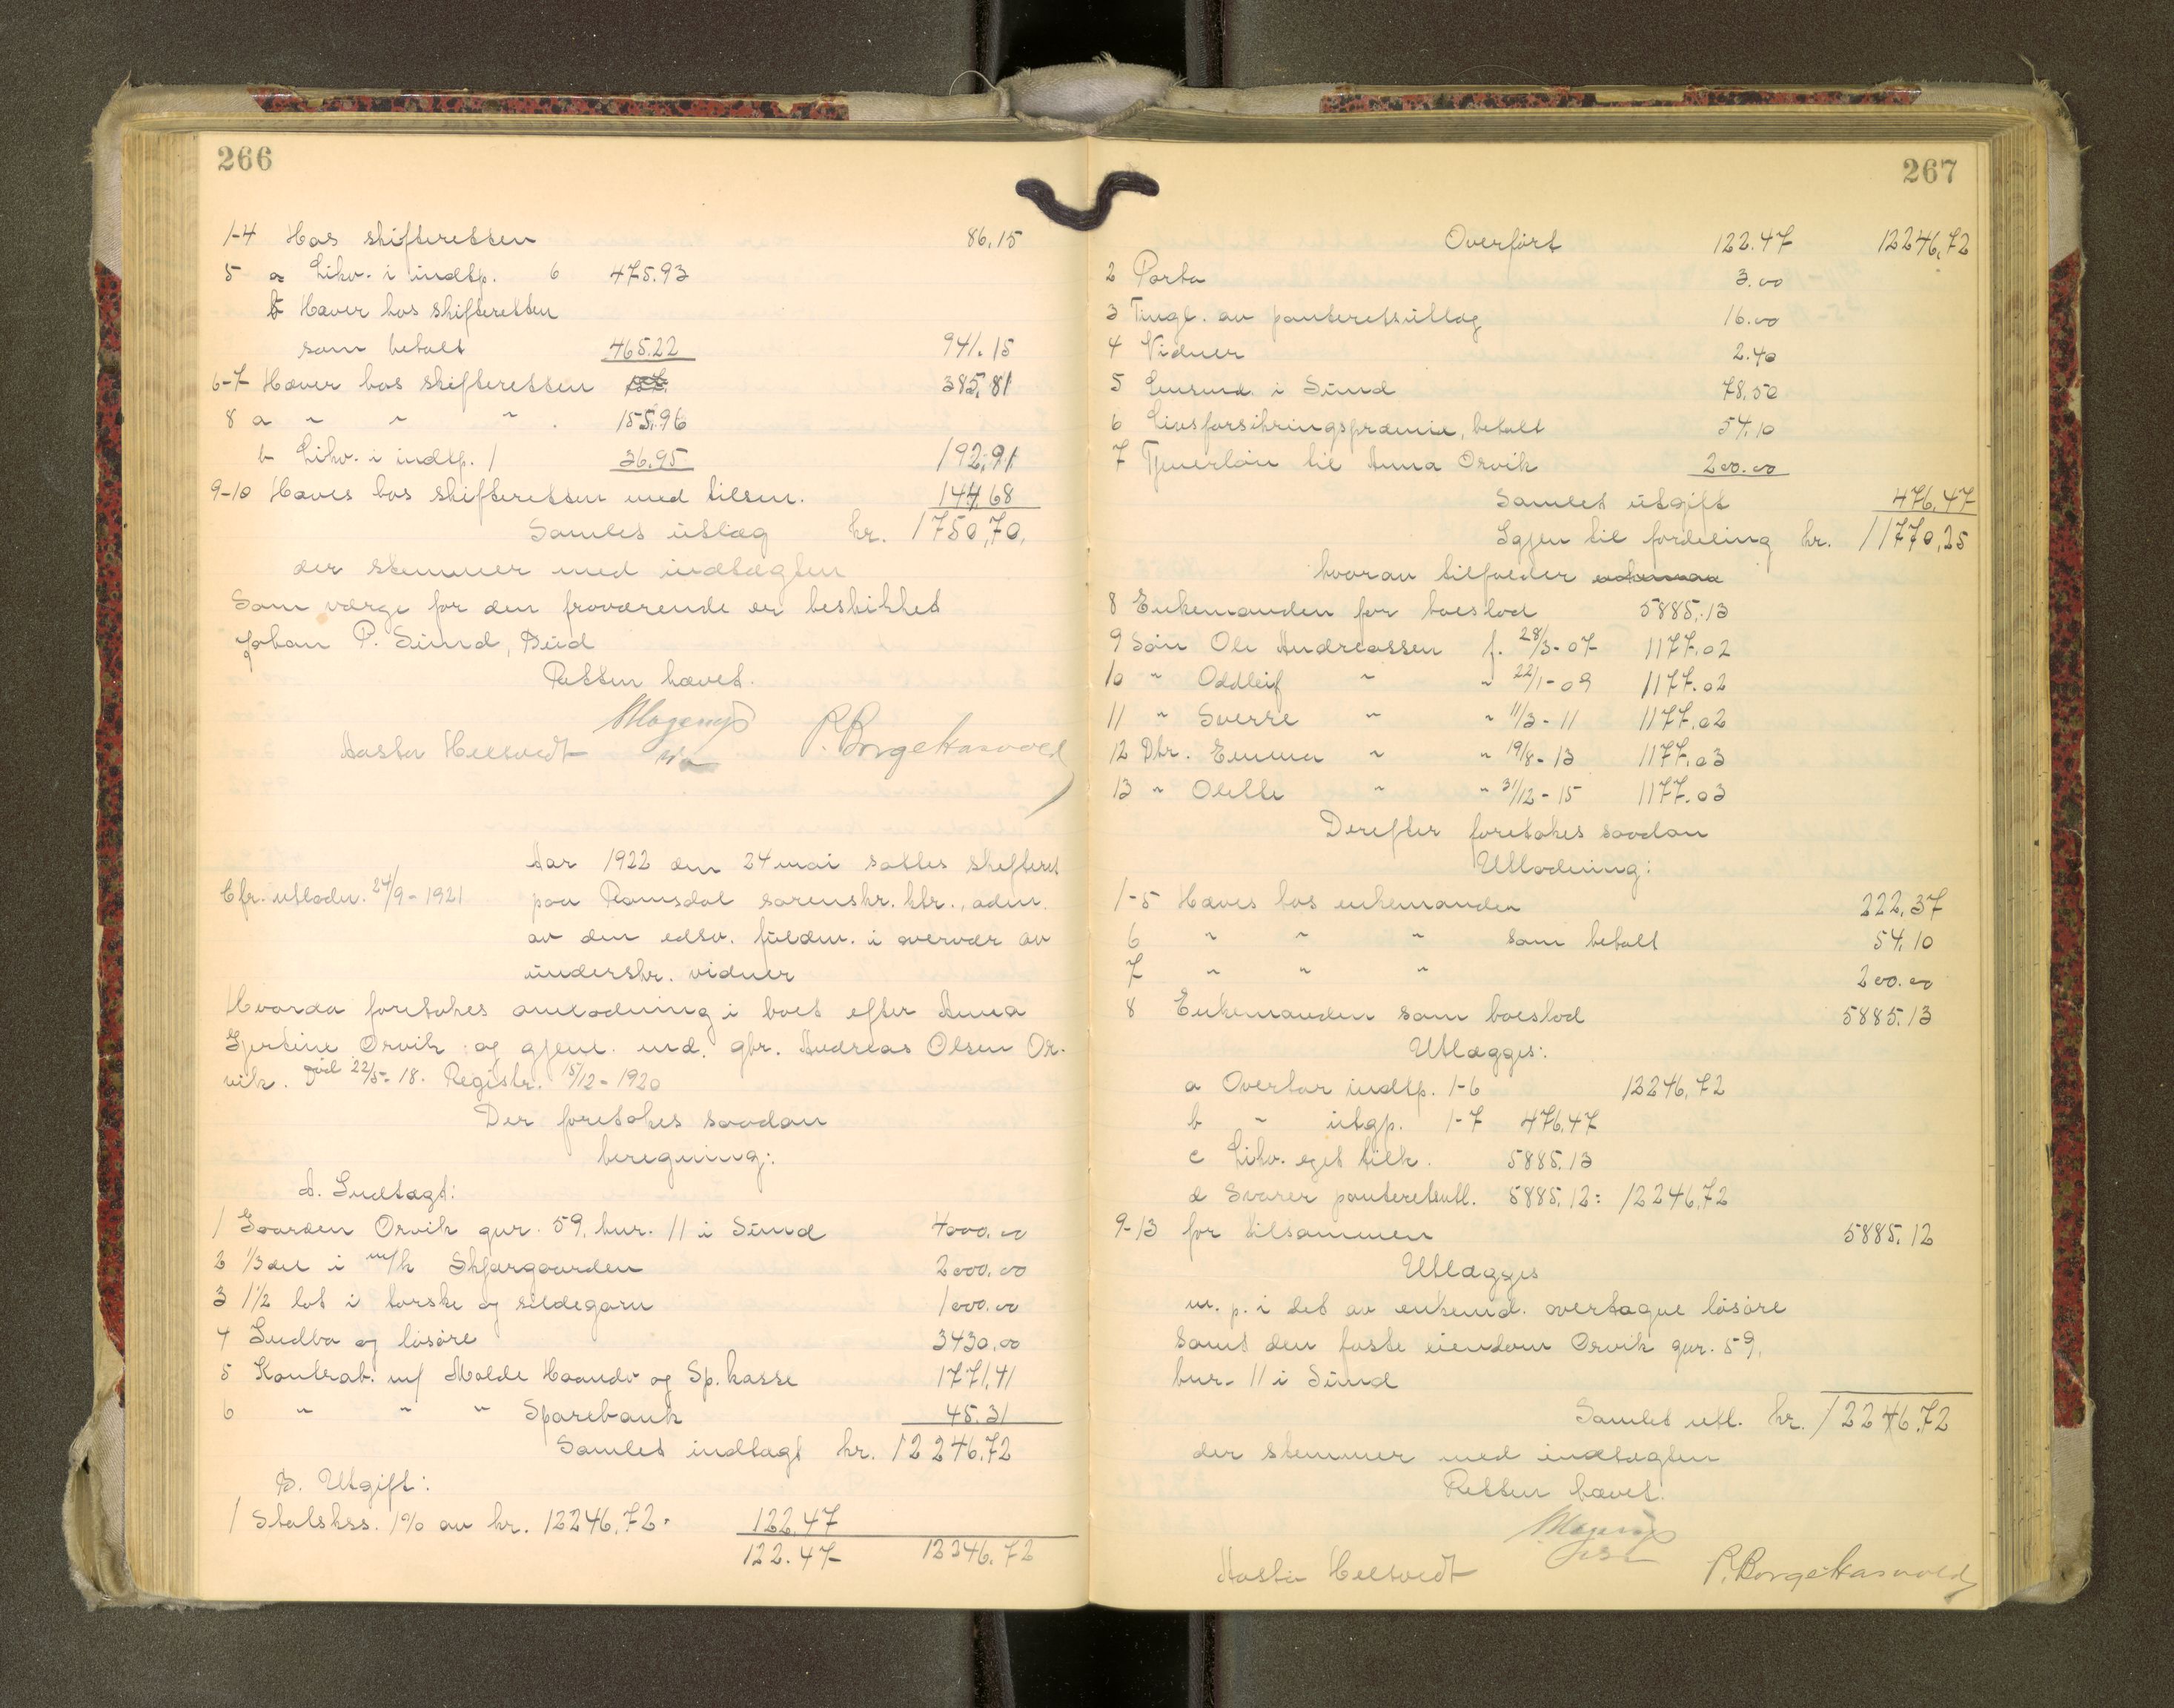 266
1-4 Hos skifteretten 86,15
5 a Likv. i indtp. 6 475.93
b Hæver hos skifteretten
som betalt 465.22 941.15
6-7 Hæver hos skifteretten 385,81
8 a " " " 155,96
b Likv. i indtp. 1 36.95 192,91
9-10 Hæves hos skifteretten med tilsm. 144,68
Samlet utlæg kr. 1750,70.
der stemmer med indtægten
Som værge for den fraværende er beskikket
Johan P. Sund, Bud
Retten hævet.
Aasta Heltvedt P. Borge Hasvold
Aar 1922 den 24 mai sattes skifteret
Cfr. utlodn. 24/9-1921 paa Romsdal sorenskr. ktr., adm.
av den edsv. fuldm. i overvær av
underskr. vidner
Hvorda foretokes omlodning i boet efter Anna
Gjertine Orvik og gjenl. md. gbr. Andreas Olsen Or-
vik. død 22/5-18. Registr. 15/12-1920
Der foretokes saadan
beregning:
A. Indtægt:
1 Gaarden Orvik gnr. 59, bnr. 11 i Sund 4000.00
2 1/3 del i m/k Skjærgaarden 2000.00
3 1 1/2 lot i torske og sildegarn 1000.00
4 Indbo og løsøre 3430,00
5 Kontrab. m/ Molde Haandv og Sp.kasse 1771,41
6 " " " Sparebank 45.31
Samlet indtægt kr. 12246.72
B. Utgift:
1 Statskss. 1% av kr. 12246,72. 122.47
122.47 12246.72
267
Overført 122.47 12246,72
2 Porto 3.00
3 Tingl. av panteretsutlæg 16.00
4 Vidner 2.40
5 Lensmd. i Sund 78,50
6 Livsforsikringspræmie, betalt 54,10
7 Tjenerløn til Anna Orvik 200.00
Samlet utgift 476,47
Igjen til fordeling kr. 11770,25
hvorav tilfalder enkemand
8 Enkemanden for boeslod 5885.13
9 Søn Ole Andreassen f. 28/3-07 1177.02
10 " Oddleif " " 22/1-09 1177.02
11 " Sverre " " 11/3-11 1177,02
12 Dtr. Emma " " 19/8-13 1177,03
13 " Olette " " 31/12-15 1177.03
Derefter foretokes saadan
Utlodning:
1-5 Hæves hos enkemanden 222,37
6 " " " som betalt 54,10
7 " " " 200.00
8 Enkemanden som boeslod 5885.13
Utlægges:
a Overtar indtp. 1-6 12246,72
b " utgp. 1-7 476,47
c Likv. eget tilk. 5885.13
d Svarer panteretsutl. 5885,12: 12246,72
9-13 for tilsammen 5885.12
Utlægges
m. p. i det av enkemd. overtagne løsøre
samt den faste eiendom Orvik gnr. 59,
bnr. 11 i Sund
Samlet utl. kr. 12246.72
der stemmer med indtægten
Retten hævet.
Aasta Heltvedt P. Borge Hasvold